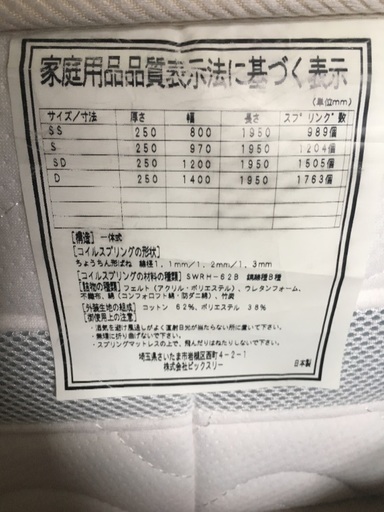 家庭用品品質表示法に基づく表示
(単位mm)
サイズ/寸法 厚さ 幅 長さ スプリング数
SS 250 800 1950 989個
S 250 970 1950 1204個
SD 250 1200 1950 1505個
D 250 1400 1950 1763個
[構造] 一体式
[コイルスプリングの形状]
ちょうちん形ばね 線径1.1mm/1.2mm/1.3mm
[コイルスプリングの材料の種類] SWRH-62B 硬鋼線B種
[詰物の種類] フェルト(アクリル・ポリエステル)、ウレタンフォーム、
不織布、綿(コンフォロフト綿・防ダニ綿)、竹炭
[外装生地の組成] コットン 62%、ポリエステル 38%
[御使用上の注意]
・湿気を避け風通しがよく直射日光が当たらない所に置いて下さい。
・無理に折り曲げないで下さい。
・スプリングマットレスの上で、飛んだりはねたりしないで下さい。
埼玉県さいたま市岩槻区西町4-2-1
株式会社ビックスリー
日本製